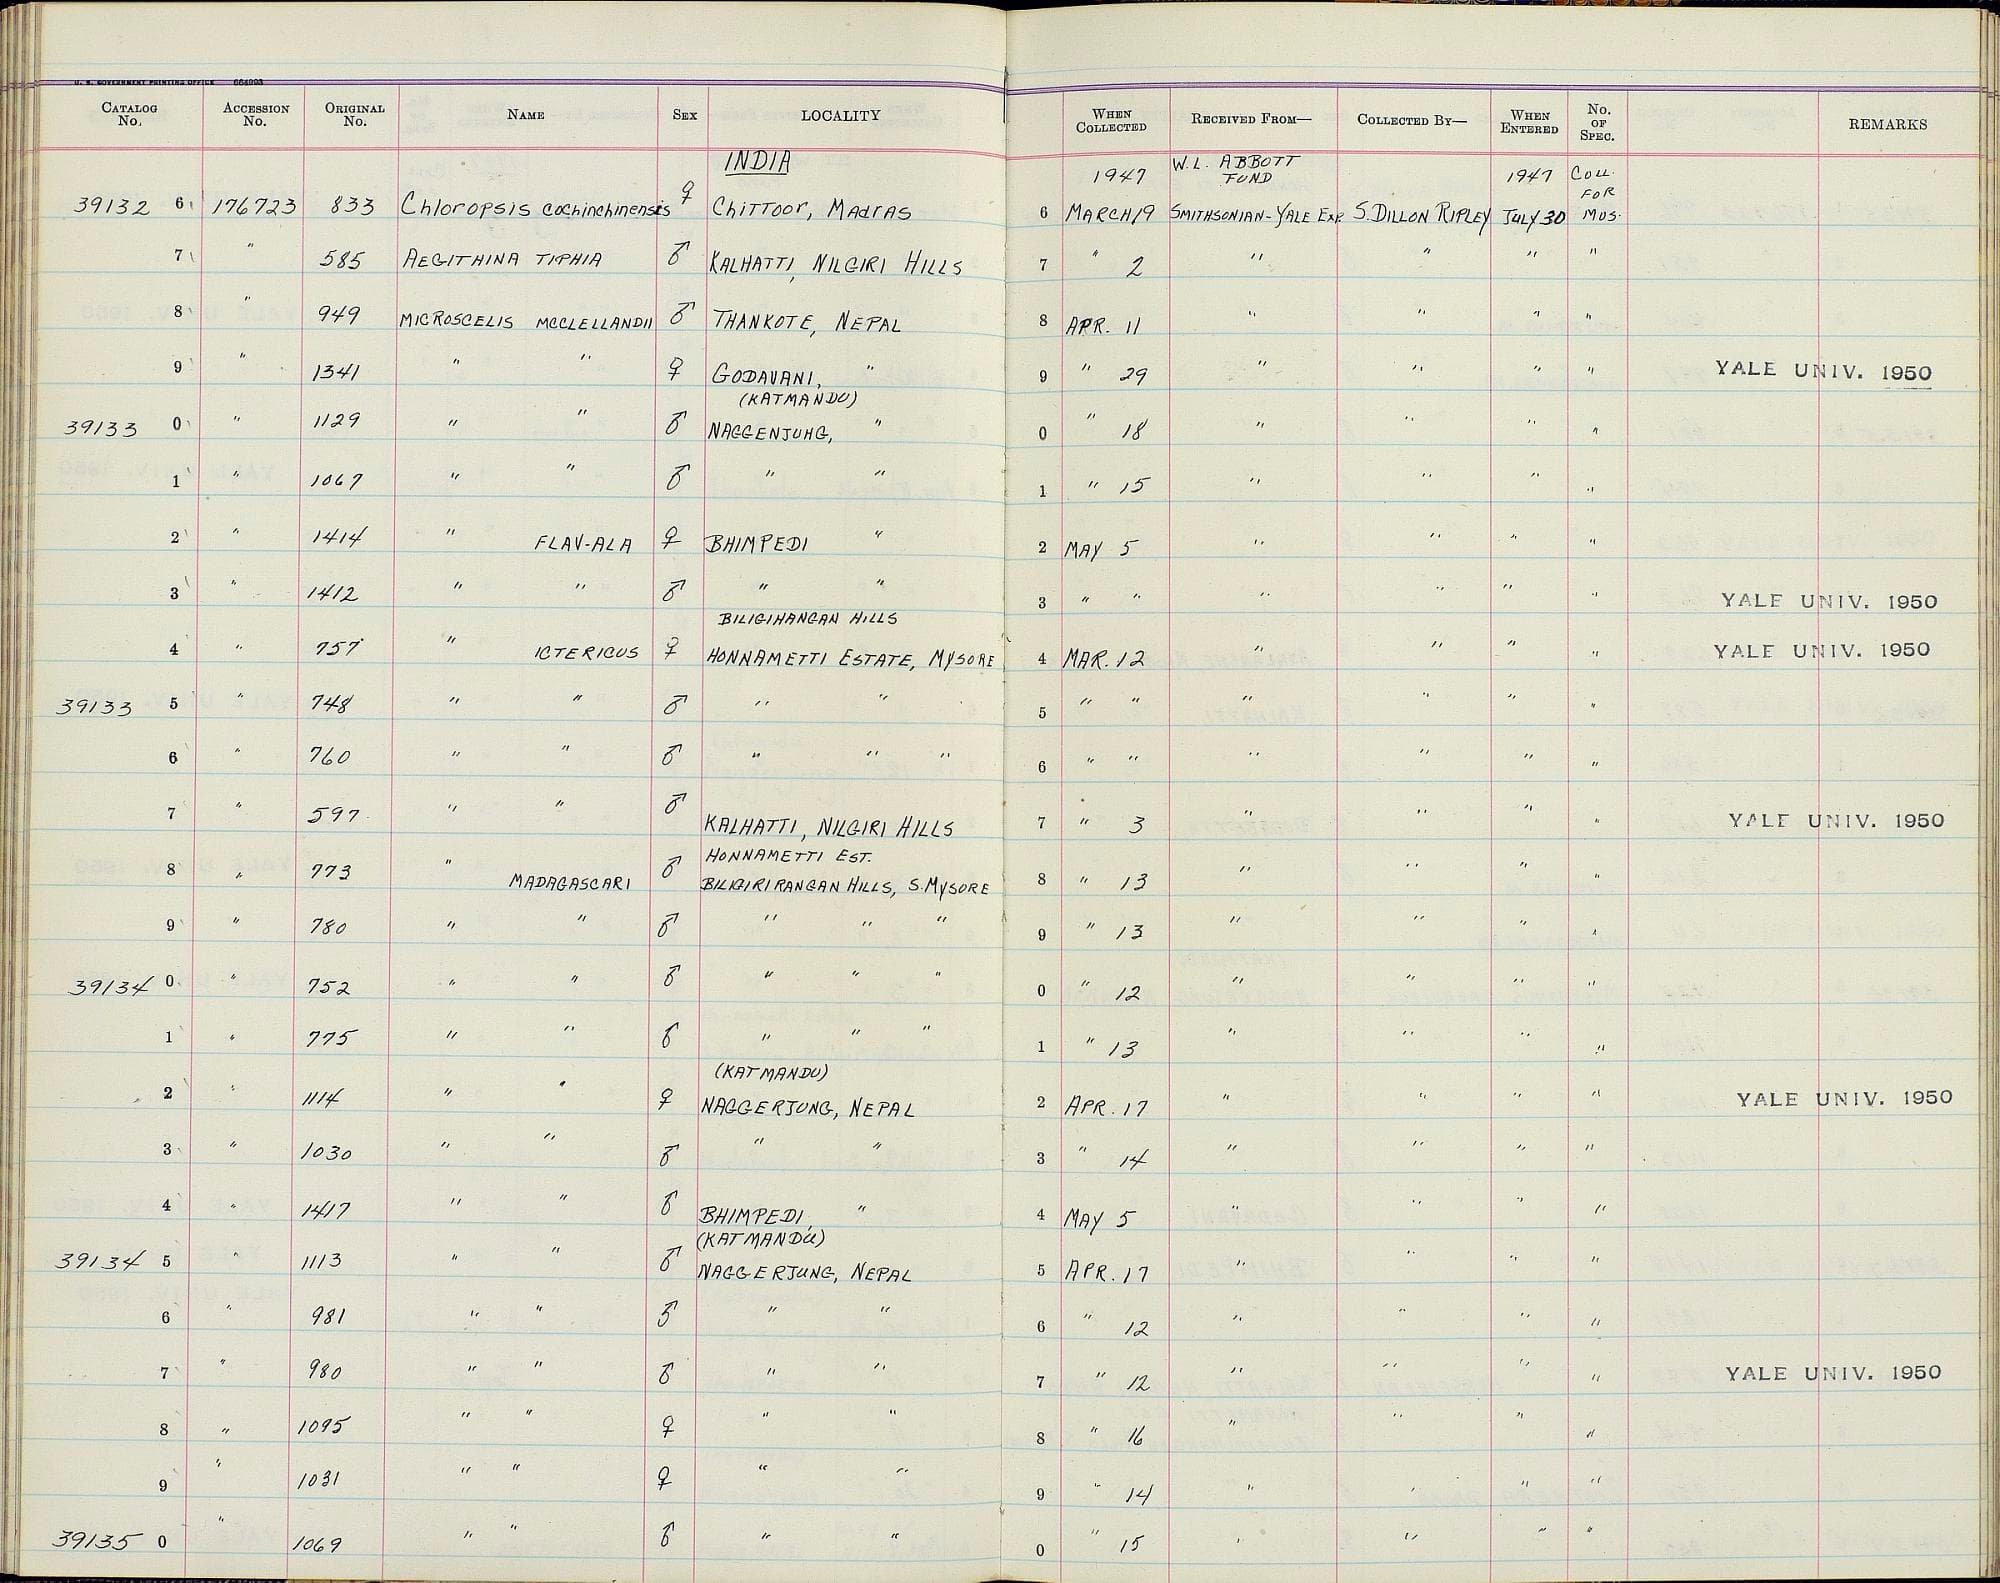 U. S. GOVERNMENT PRINTING OFFICE 664993
CATALOG No. ACCESSION No. ORIGINAL No. NAME SEX LOCALITY WHEN COLLECTED RECEIVED FROM— COLLECTED BY— WHEN ENTERED No. OF SPEC. REMARKS
INDIA 1947 W.L. ABBOTT FUND 1947 COLL. FOR MUS.
39132 6 176723 833 Chloropsis cochinchinensis ♀ Chittoor, Madras 6 MARCH 19 SMITHSONIAN-YALE EXP. S. DILLON RIPLEY JULY 30
7 " 585 AEGITHINA TIPHIA ♂ KALHATTI, NILGIRI HILLS 7 " 2 " " " "
8 " 949 MICROSCELIS MCCLELLANDII ♂ THANKOTE, NEPAL 8 APR. 11 " " " "
9 " 1341 " " ♀ GODAVANI, " 9 " 29 " " " " YALE UNIV. 1950
(KATMANDU)
39133 0 " 1129 " " ♂ NAGGENJUHG, " 0 " 18 " " " "
1 " 1067 " " ♂ " " 1 " 15 " " " "
2 " 1414 " FLAV-ALA ♀ BHIMPEDI " 2 MAY 5 " " " "
3 " 1412 " " ♂ " " 3 " " " " " " YALE UNIV. 1950
BILIGIHANGAN HILLS
4 " 757 " ICTERICUS ♀ HONNAMETTI ESTATE, MYSORE 4 MAR. 12 " " " " YALE UNIV. 1950
39133 5 " 748 " " ♂ " " 5 " " " " " "
6 " 760 " " ♂ " " " 6 " " " " " "
7 " 597 " " ♂ KALHATTI, NILGIRI HILLS 7 " 3 " " " " YALE UNIV. 1950
HONNAMETTI EST.
8 " 773 " MADAGASCARI ♂ BILIGIRIRANGAN HILLS, S. MYSORE 8 " 13 " " " "
9 " 780 " " ♂ " " " 9 " 13 " " " "
39134 0 " 752 " " ♂ " " " 0 " 12 " " " "
1 " 775 " " ♂ " " " 1 " 13 " " " "
(KATMANDU)
2 " 1114 " " ♀ NAGGERJUNG, NEPAL 2 APR. 17 " " " " YALE UNIV. 1950
3 " 1030 " " ♂ " " 3 " 14 " " " "
4 " 1417 " " ♂ BHIMPEDI, " 4 MAY 5 " " " "
(KATMANDU)
39134 5 " 1113 " " ♂ NAGGERJUNG, NEPAL 5 APR. 17 " " " "
6 " 981 " " ♂ " " 6 " 12 " " " "
7 " 980 " " ♂ " " 7 " 12 " " " " YALE UNIV. 1950
8 " 1095 " " ♀ " " 8 " 16 " " " "
9 " 1031 " " ♀ " " 9 " 14 " " " "
39135 0 " 1069 " " ♂ " " 0 " 15 " " " "